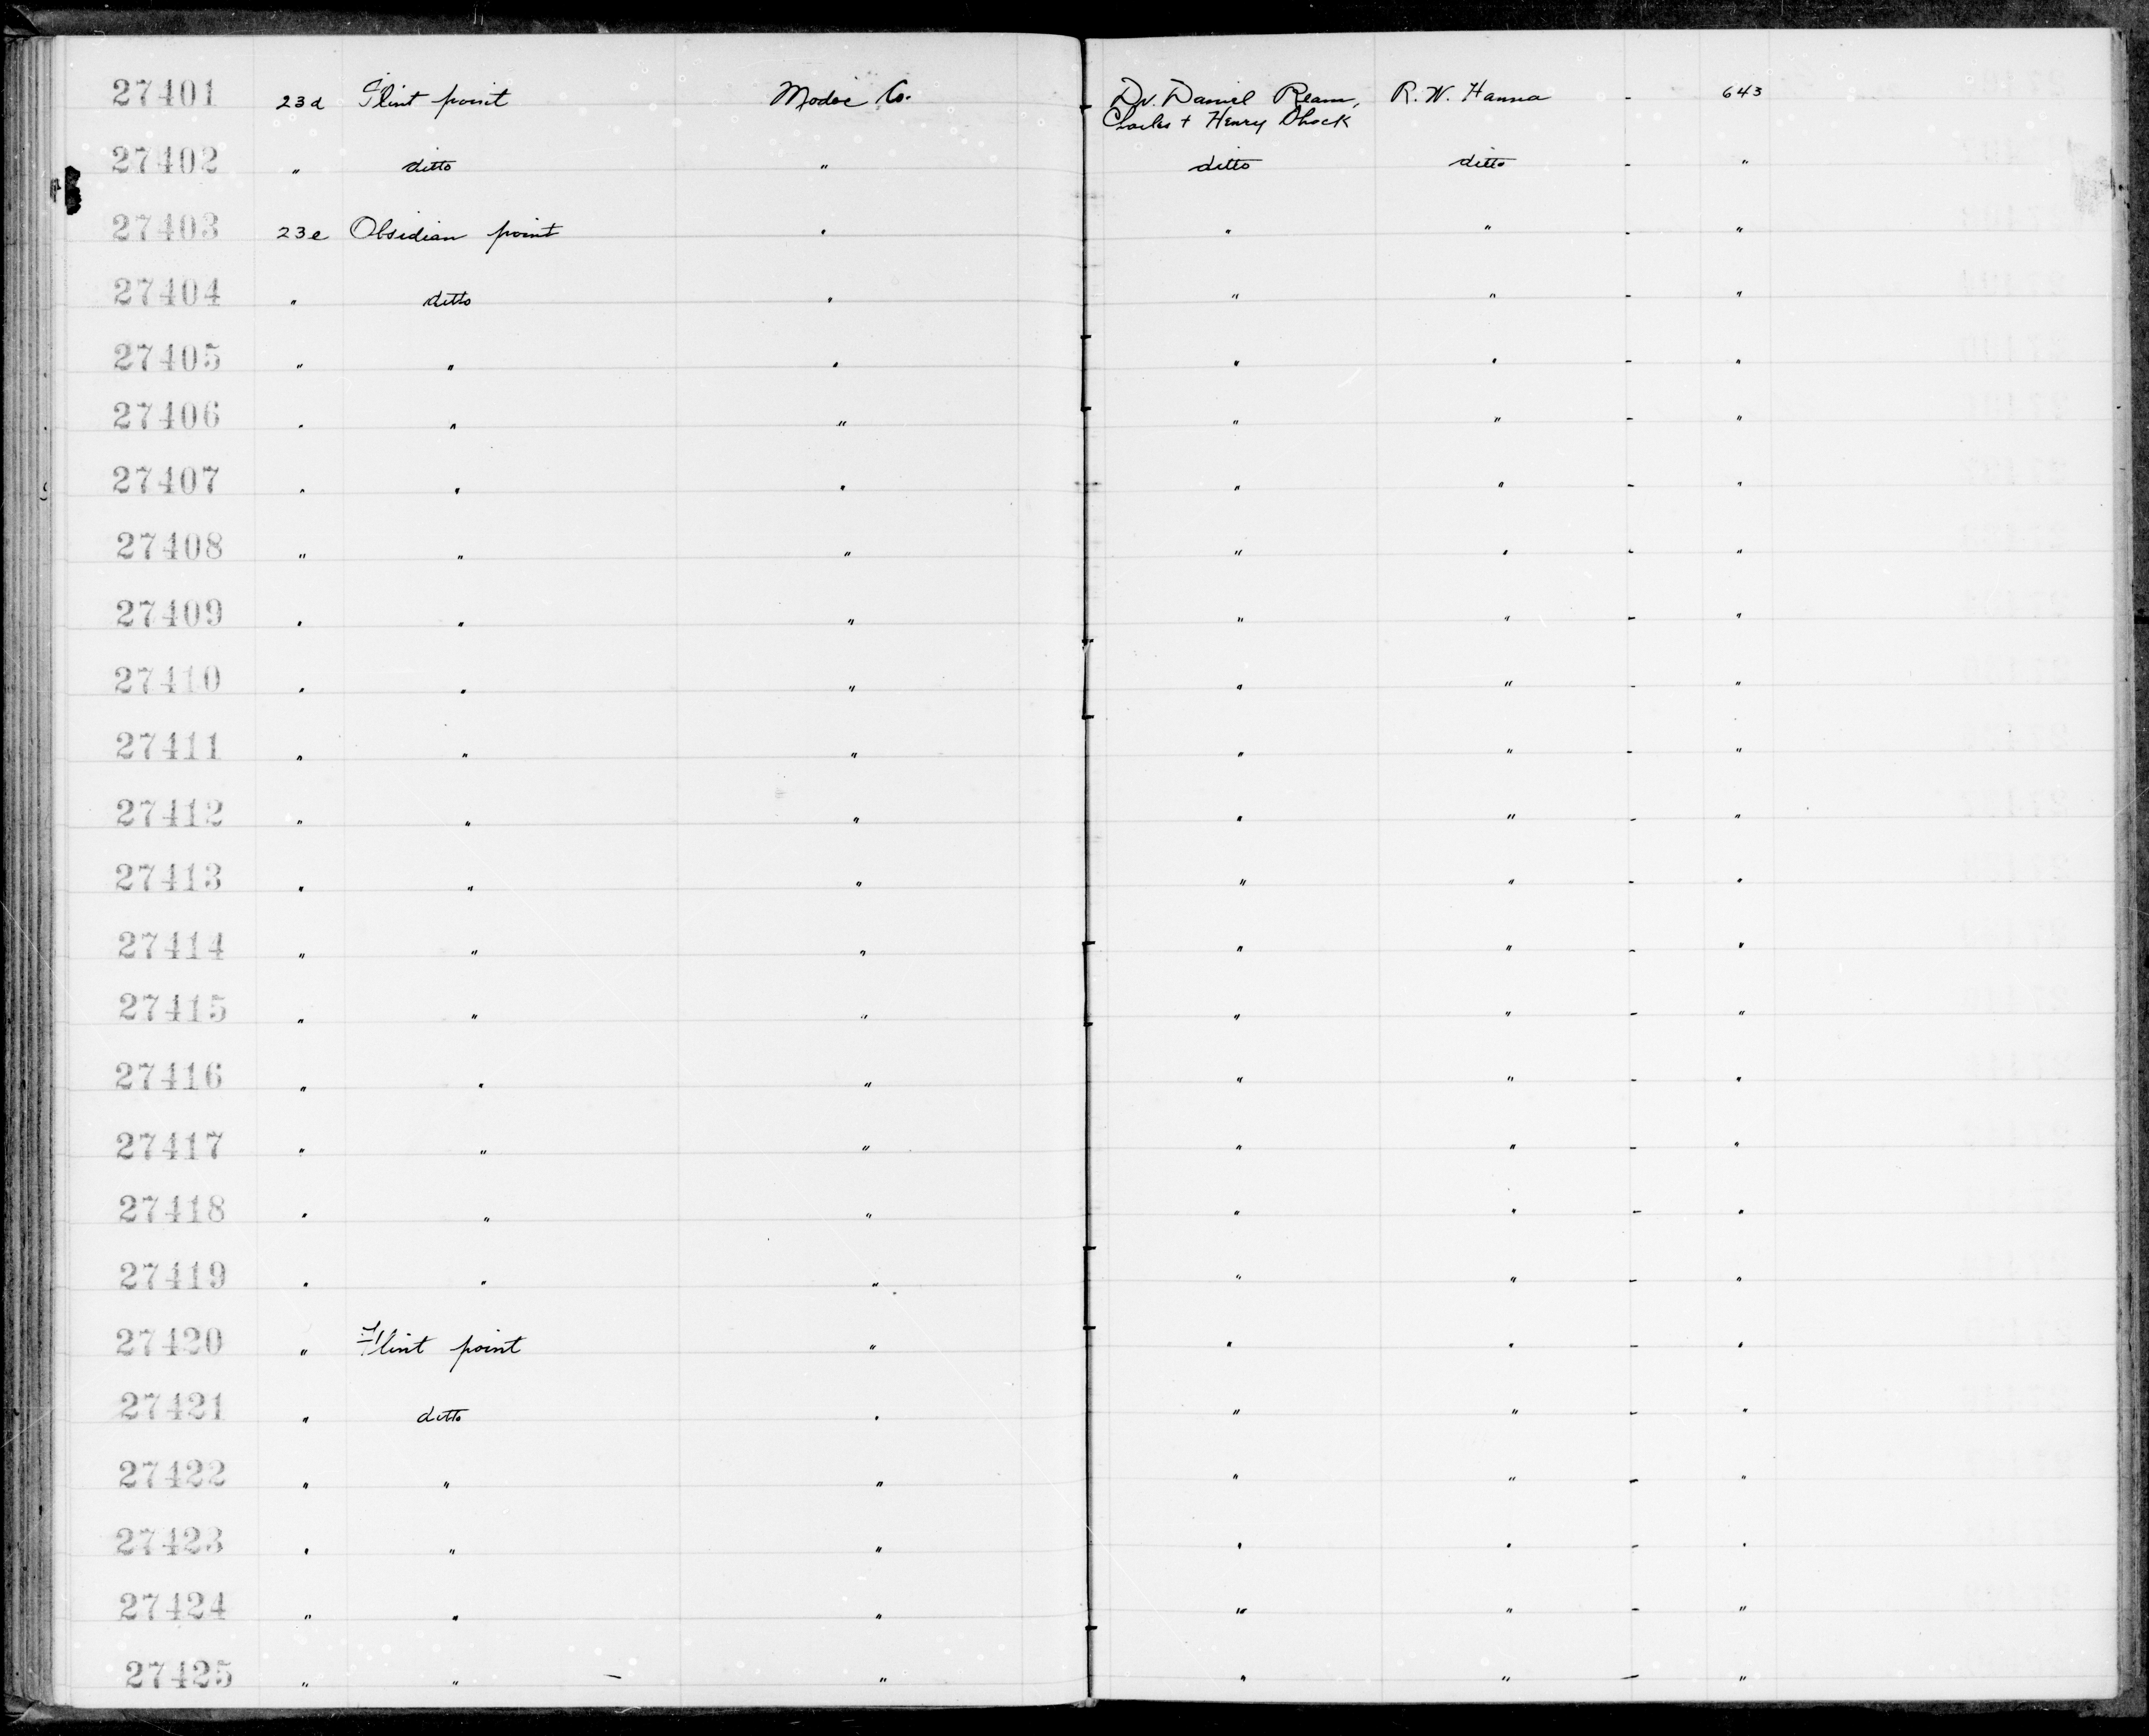 27401 23d Flint point Modoc Co. Dr. Daniel Ream, R. W. Hanna - 643
Charles + Henry Shock
27402 " ditto " ditto ditto - "
27403 23e Obsidian point " " " - "
27404 " ditto " " " - "
27405 " " " " " - "
27406 " " " " " - "
27407 " " " " " - "
27408 " " " " " - "
27409 " " " " " - "
27410 " " " " " - "
27411 " " " " " - "
27412 " " " " " - "
27413 " " " " " - "
27414 " " " " " - "
27415 " " " " " - "
27416 " " " " " - "
27417 " " " " " - "
27418 " " " " " - "
27419 " " " " " - "
27420 " Flint point " " " - "
27421 " ditto " " " - "
27422 " " " " " - "
27423 " " " " " - "
27424 " " " " " - "
27425 " " - " " " - "